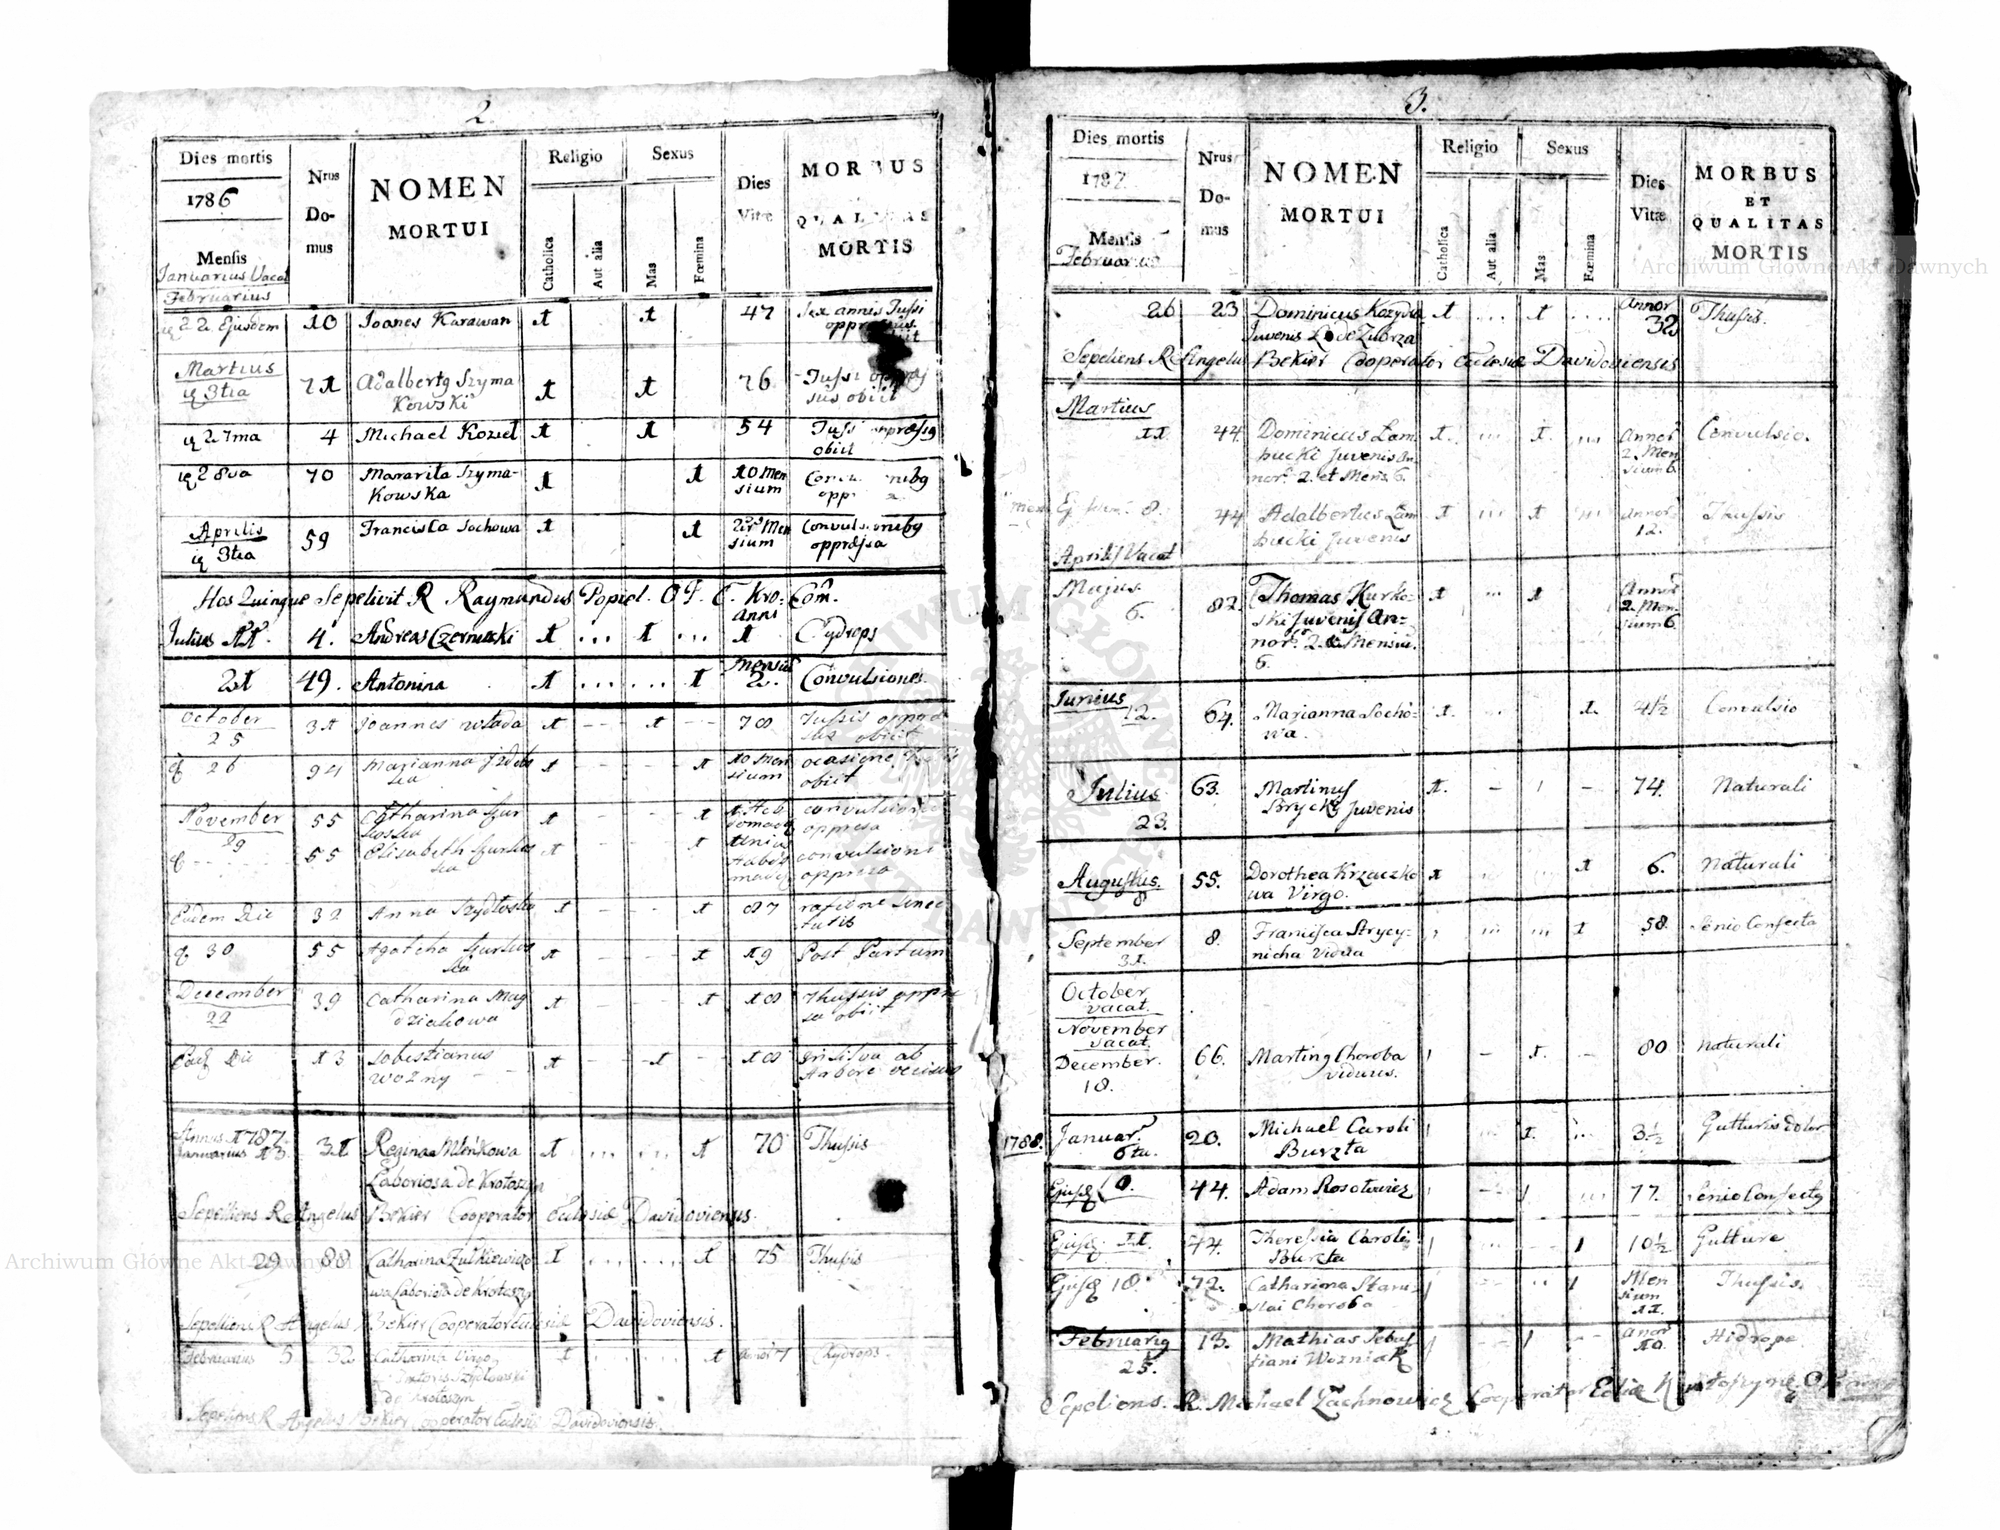 2.
Dies mortis
1786
Mensis
Januarius Vacat
Februarius
Nrus Do- mus
NOMEN
MORTUI
Religio
Catholica
Aut alia
Sexus
Mas
Fœmina
Dies
Vitæ
MORBUS
QUALITAS
MORTIS
22 Ejusdem 10 Joanes Karawan 1 1 47 Sex annis Tussi
Martius
3tia 21 Adalbertg Szyma
Kowski 1 1 76 Tussi
sus obiit
27ma 4 Michael Koziel 1 1 54 Tussi
obiit
28va 70 Mararita Szyma-
Kowska 1 1 10 Men
sium
Aprilis
3tia 59 Francisca Sochowa 1 1 Men
sium Convulsionibg
oppræssa
Hos Quinque Sepelivit R Raymundus Popiel. O
Anni
Julius 11. 4. Andreas Czernecki 1 ... 1 ... 1 Cydrops
Mensiu
21 49. Antonina 1 ... ... 1 2. Convulsiones.
October
25 31 Joannes Wlada 1 -- 1 -- 70 Tussis
sus obiit
26 94 Marianna 1 - - - - 1 10 Men
sium ocasione
obiit
November
29 55 Catharina 1 1 1 Heb
domadg convulsione
oppresa
55 Elisabeth 1 1 convulsione
oppresa
Eodem Die 32 Anna Szydloska 1 - - - - 1 87 ratione Senec
tutis
30 55 Agatcha 1 - - - - 1 19 Post Partum
December
22 39 Catharina Mag
dziakowa 1 - - - - 1 10 Thussis
sa obiit
Die 13 Sobestianus
Wozny 1 - - 1 - - 10 in Silva ab
Arbore
Annus 1787
Januarius 13. 31 Regina Mlénkowa
Laboriosa de Krotoszyn 1 ... ... 1 70 Thussis
Sepeliens R Angelus Bekier Cooperator Eclesiæ Davidoviensis.
29 88 Catharina Zulkiewiczo
wa Laboriosa de Krotoszyn 1 ... ... 1 75 Thussis
Sepeliens R Angelus Bekier Cooperator Eclesiæ Davidoviensis.
Februarius 5 32 Catharina Virgo
Szydlowski
de Krotoszyn 1 ... ... 1 Annor 7 Chydrops.
Sepeliens R Angelus Bekier Cooperator Eclesiæ Davidoviensis.
3.
Dies mortis
1787.
Mensis
Februarius
Nrus Do- mus
NOMEN
MORTUI
Religio
Catholica
Aut alia
Sexus
Mas
Fœmina
Dies
Vitæ
MORBUS
ET
QUALITAS
MORTIS
26 23 Dominicus Kozydra
Juvenis de Zubrza 1 ... 1 .... Annor
32 Thussis.
Sepeliens R Angelus Bekier Cooperator Eclesiæ Davidoviensis
Martius
11 44. Dominicus Lam
bucki Juvenis An
nor. 2. et Mens. 6. 1. ... 1. ... Annor
2. Men
sium 6. Convulsio.
8. 44 Adalbertus Lam
bucki Juvenis 1 ... 1 ... Annor
12. Thussis
Aprilis Vacat
Majus
6. 82. Thomas Kurko-
ski Juvenis An-
nor. 2. & Mensiu.
6. 1 ... 1 Annor
2. Men-
sium 6.
Junius
12. 64. Marianna Socho-
wa. 1. ... 1. 4½ Convulsio
Julius
23. 63. Martinus
Strycki Juvenis 1. - 1 - 74. Naturali
Augustus.
8 55. Dorothea Krzaczko
wa Virgo. 1 ... ... 1 6. Naturali
September
31. 8. Francisca Strycy-
nicha Vidua 1 ... ... 1 58. Senio Confecta
October
vacat.
November
vacat.
December.
18. 66. Marting Choroba
viduus. 1 - 1. - 80 Naturali
1788. Januar.
6ta. 20. Michael Caroli
Burzta 1 ... 1. ... 3½ Gutturis dolor
Ejusq 10. 44. Adam Rosolowicz 1 - 1 ... 77. Senio Confectg
Ejusq 11. 44. Theressia Caroli
Burzta 1 ... - 1 10½ Gutture
Ejusq 18. 72. Catharina Stanis
lai Choroba 1 - .. 1 Men
sium
11. Thussis.
Februarig
25. 13. Mathias Sebas
tiani Wozniak 1 - 1 - Annor
10. Hidrope
Sepeliens. R. Michael Zachnowicz Cooperator
Archiwum Główne Akt Dawnych
Archiwum Główne Akt Dawnych
ARCHIWUM GŁÓWNE AKT DAWNYCH